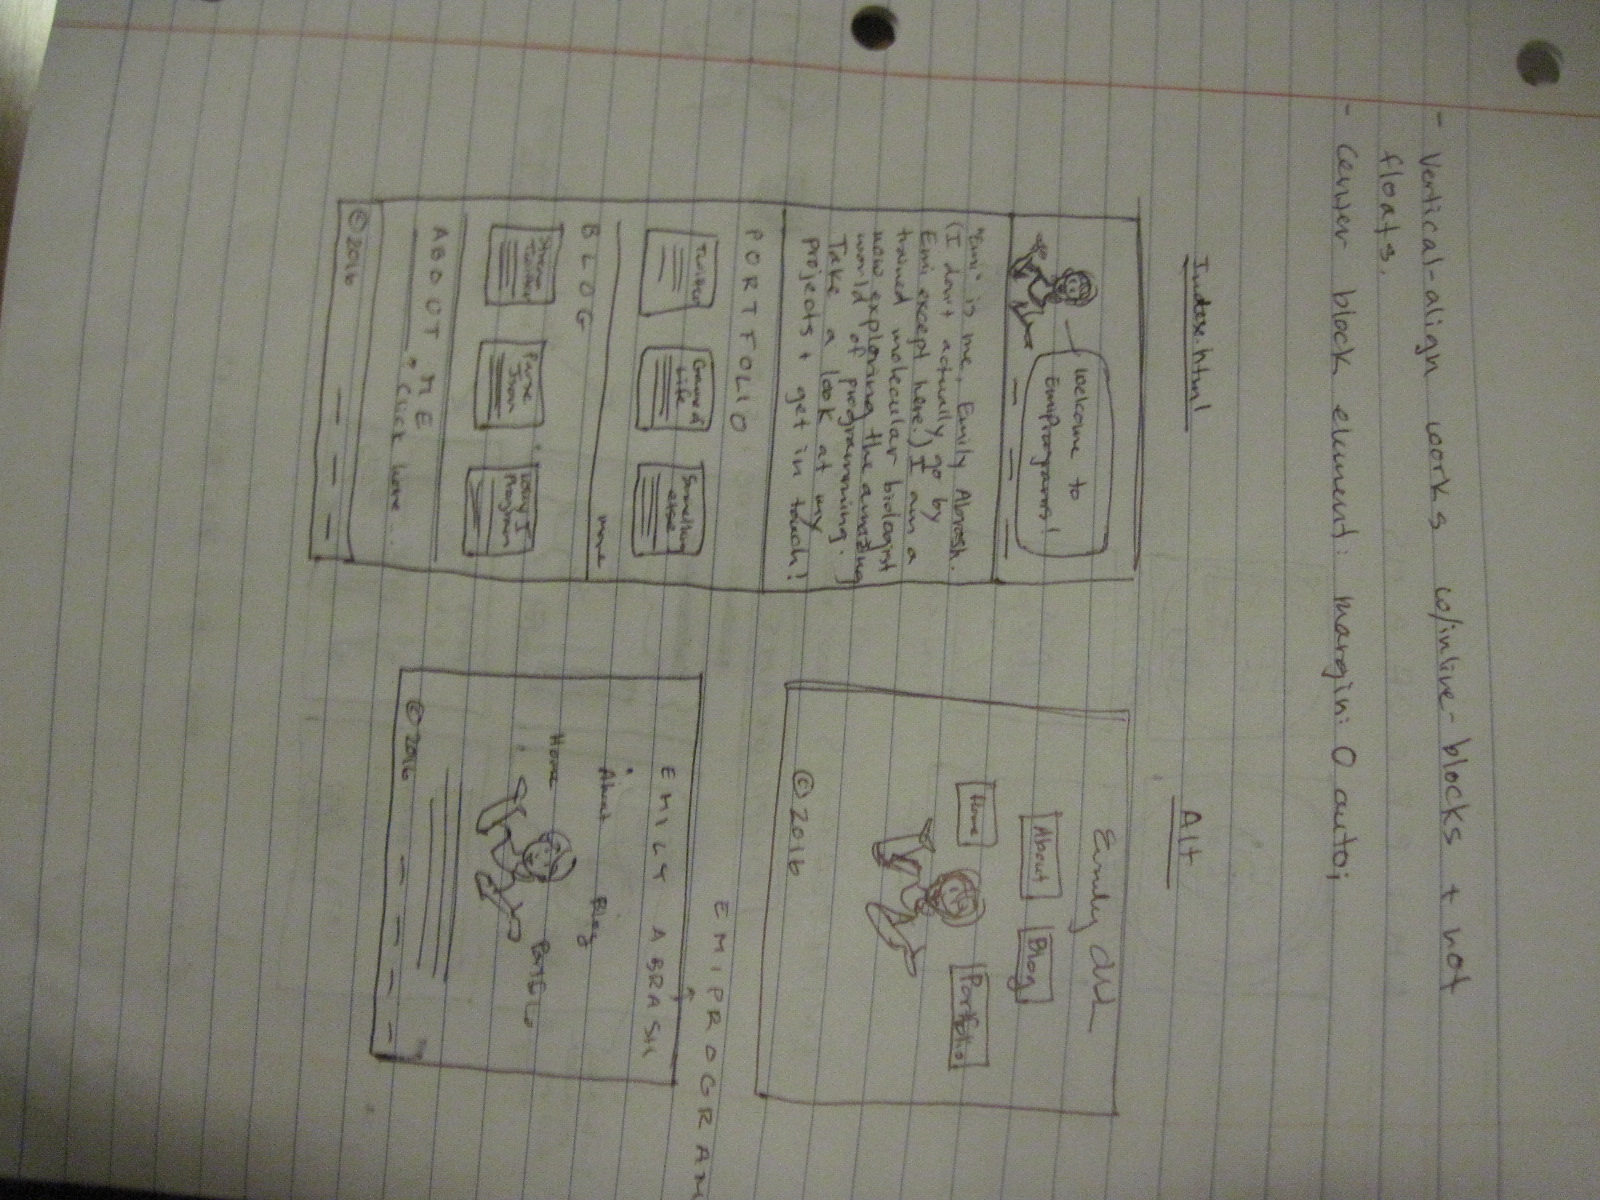 - Vertical-align works w/inline-blocks + not
floats.
- Center block element: margin: 0 auto;
Index.html
Welcome to
EmiPrograms!
"Emi" is me, Emily Abrash.
(I don't actually go by
Emi except here.) I am a
trained molecular biologist
now exploring the amazing
world of programming.
Take a look at my
projects + get in touch!
PORTFOLIO
Game of
Life
Something
else
more
BLOG
Parse
Json
Why I
Program
ABOUT ME
Click here...
© 2016
Alt
Emily
About
Blog
Home
Portfolio
© 2016
EMIPROGRAM
EMILY ABRASH
About
Blog
Home
© 2016